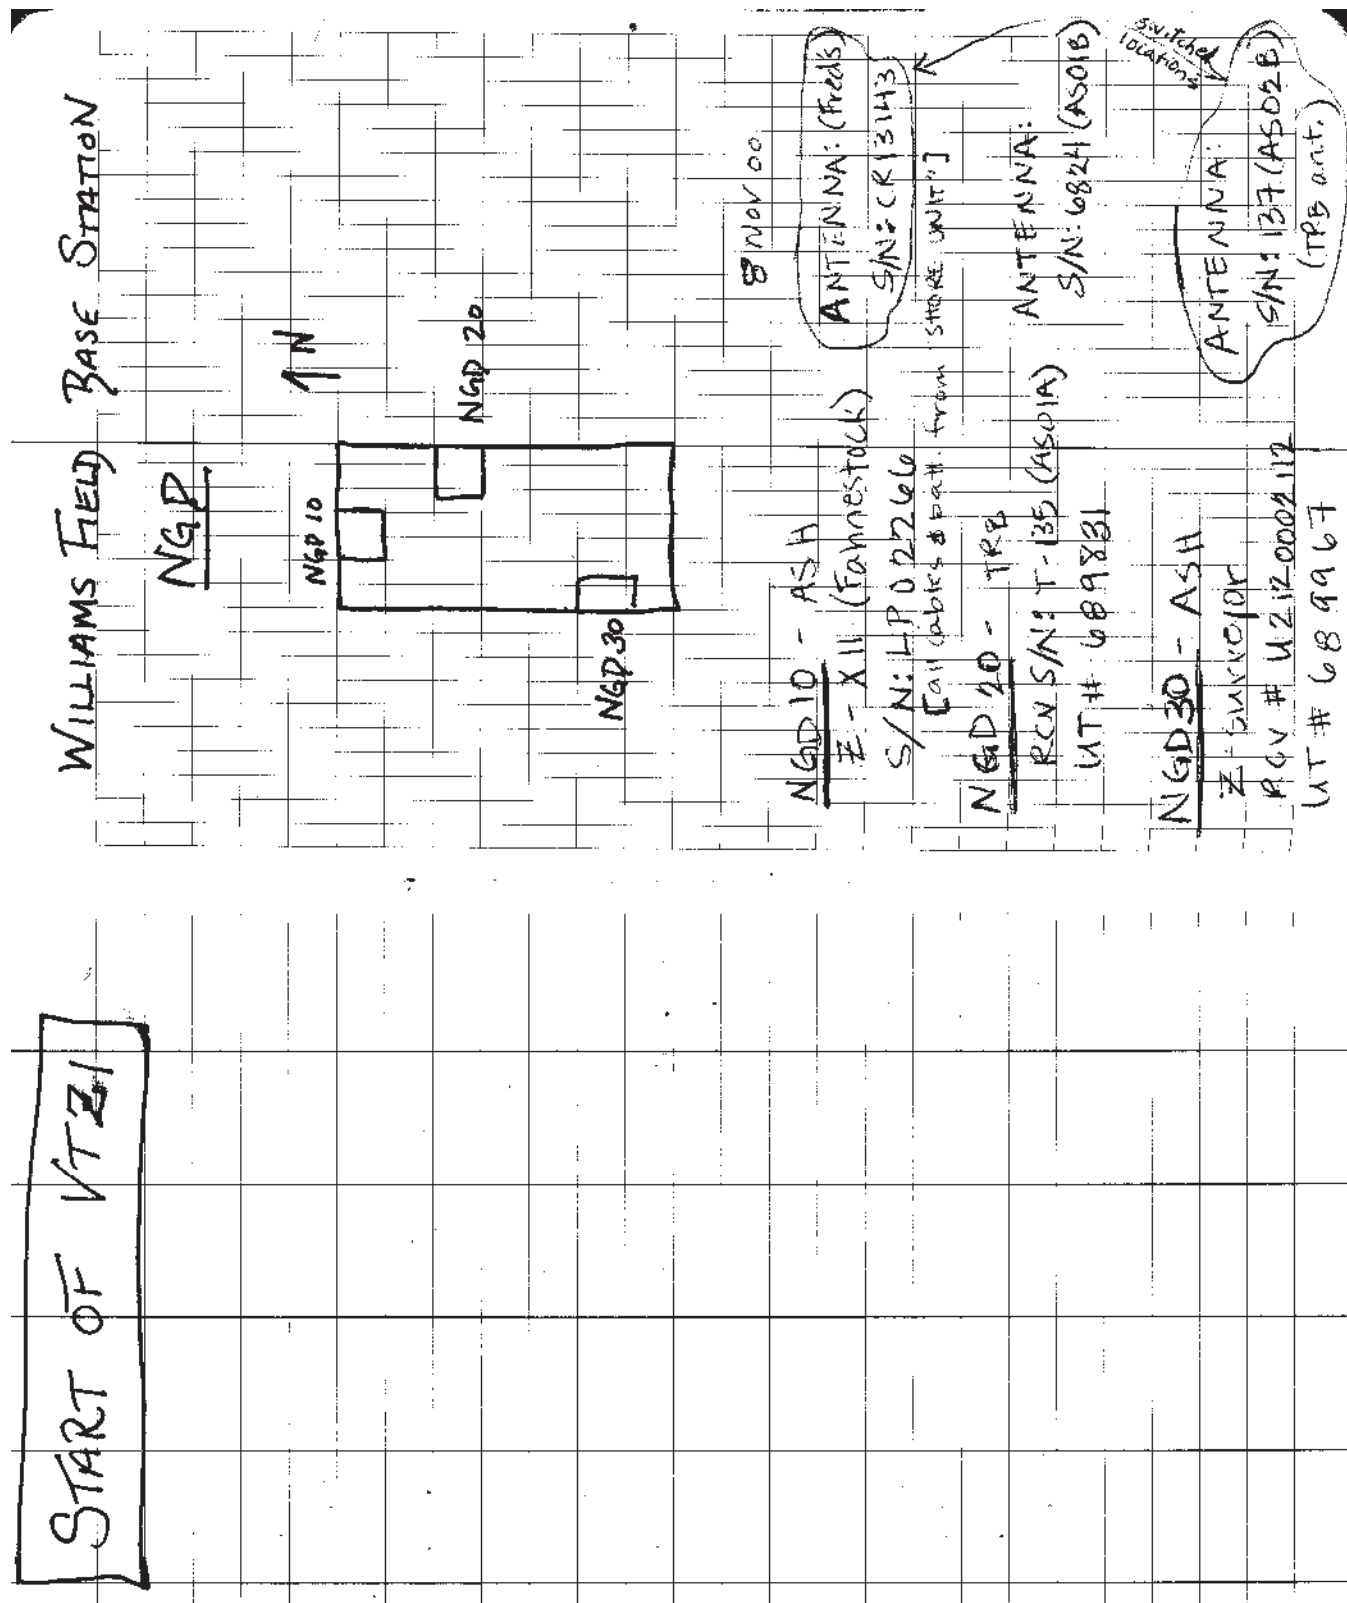 START OF VTZ1
WILLIAMS FIELD BASE STATION
NGD
N
NGD 10
NGD 20
NGD 30
8 NOV 00
NGD10 - ASH
Z-XII (Fahnestock)
S/N: LP02266
ANTENNA: (Fred's)
S/N: CR13143
[all cables & batt. from "SHORE UNIT"]
NGD 20 - TRB
RCV S/N: T-135 (AS01A)
UT# 689831
ANTENNA:
S/N: 6824 (AS01B)
switched locations
NGD30 - ASH
Z-surveyor
RCV # U2120002112
UT # 689967
ANTENNA:
S/N: 137 (AS02B)
(TRB ant.)